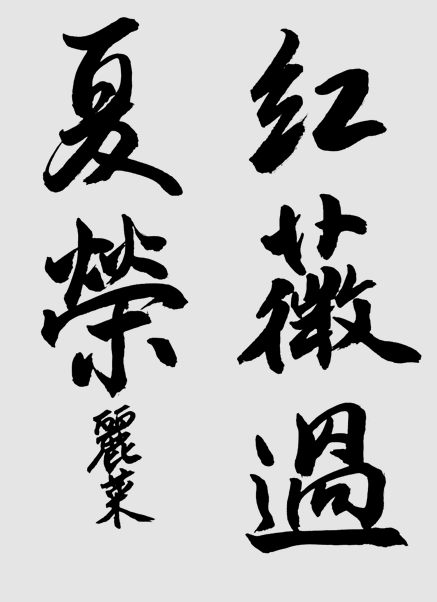 紅薇過
夏榮
麗菜